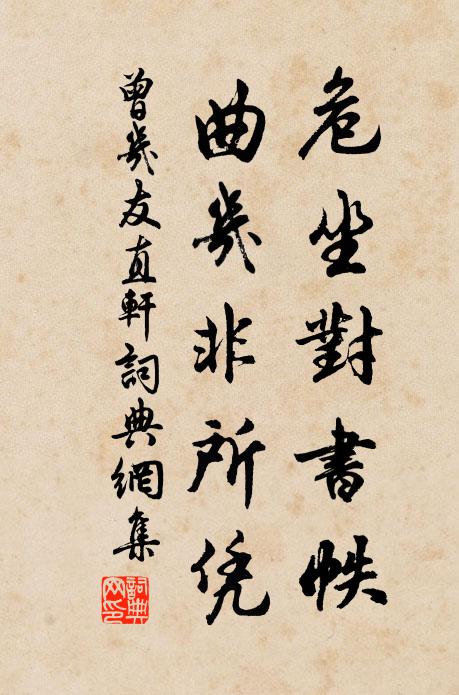 危坐對書帙
曲幾非所凭
曾幾友直軒詞典網集
詞典网印